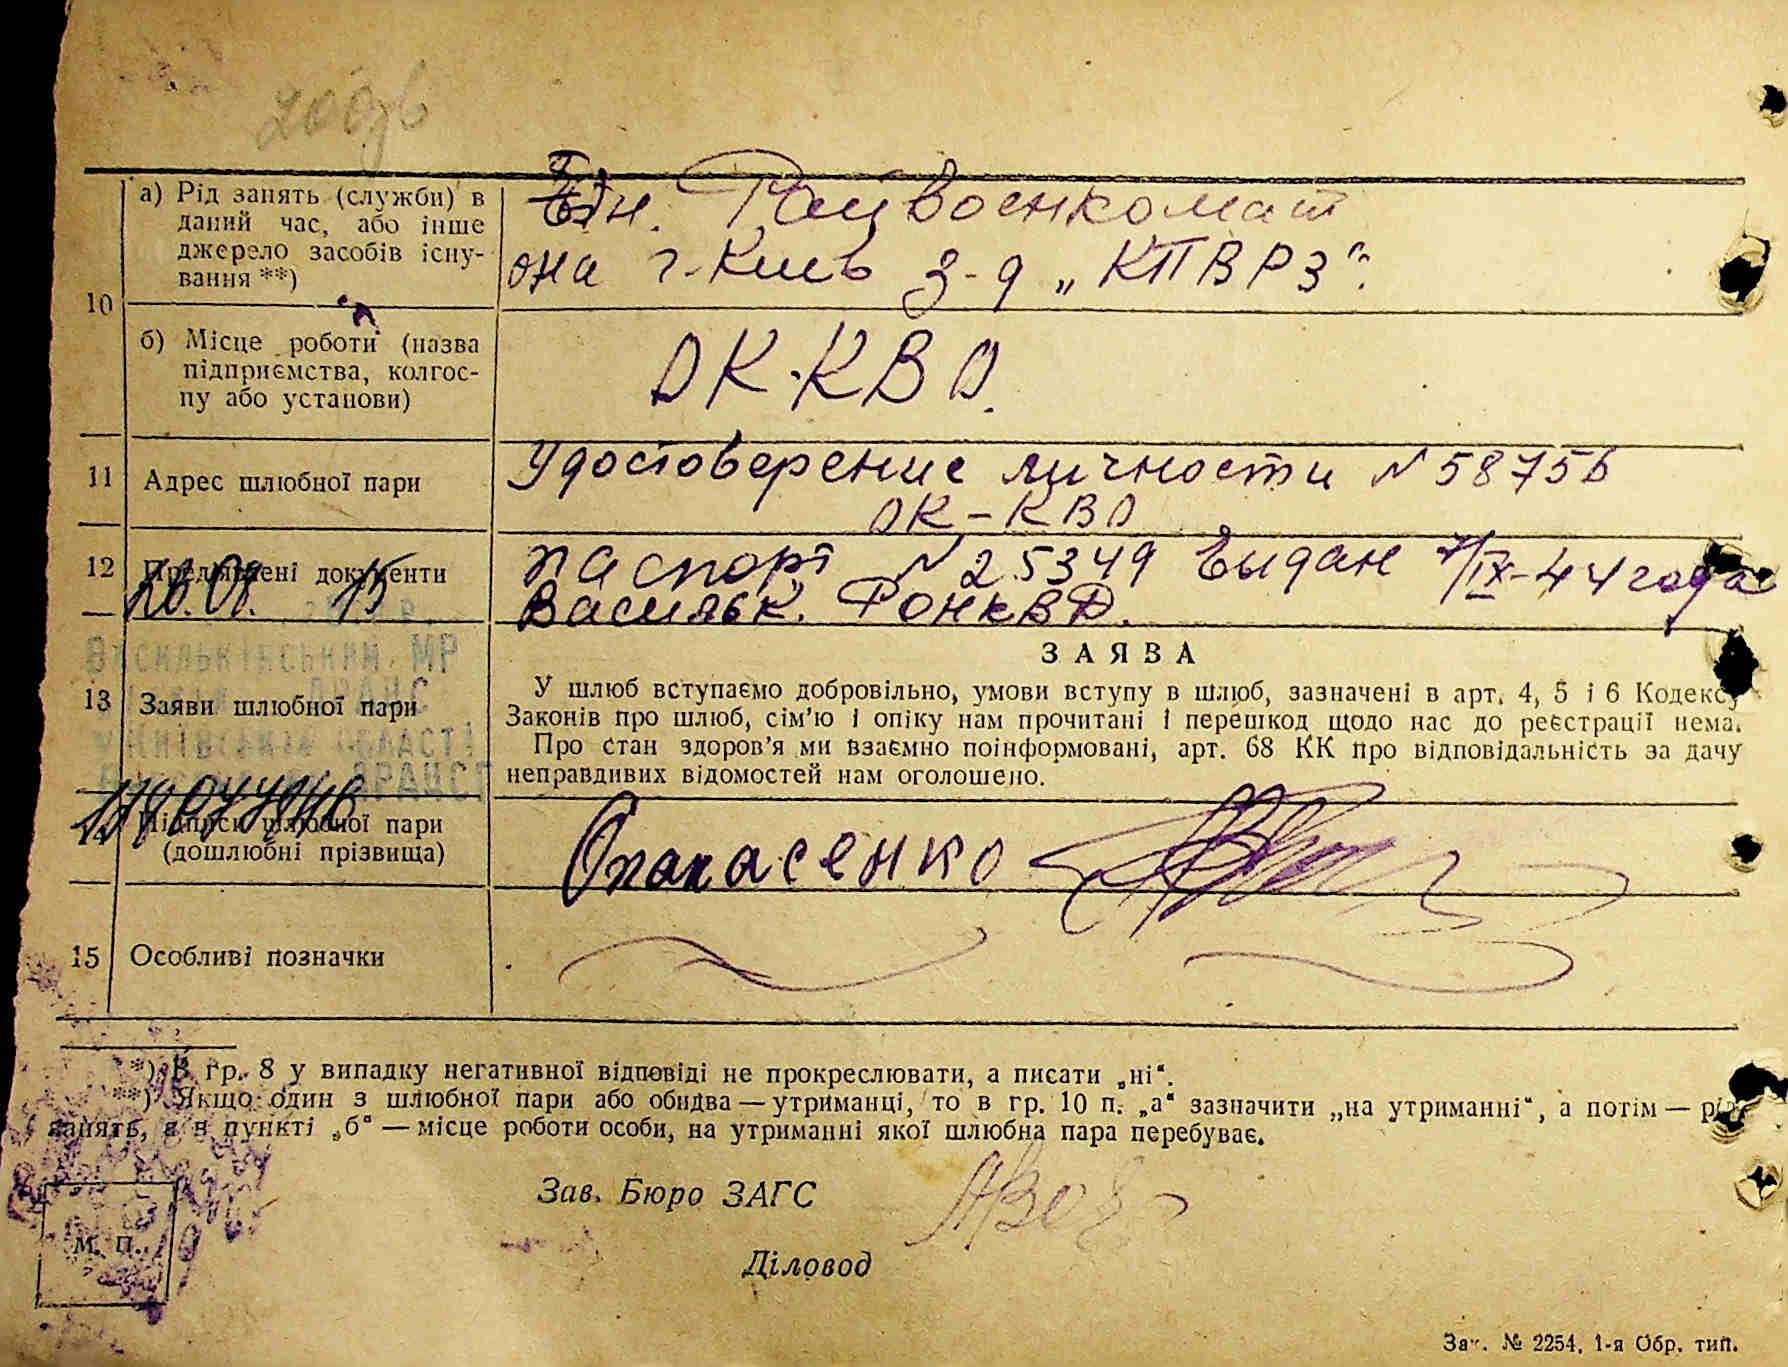 10
а) Рід занять (служби) в
даний час, або інше
джерело засобів існу-
вання **)
Райвоенкомат
она г. Киев з-д „КПВРЗ“.
б) Місце роботи (назва
підприємства, колгос-
пу або установи)
ОК-КВО.
11 Адрес шлюбної пари
Удостоверение личности N 58756
ОК-КВО
12 Пред'явлені документи
паспорт N 25349 выдан 7/IX-44 года
Васильк. РОНКВД.
Васильківським МР
ДРАЦС
13 Заяви шлюбної пари
КИЇВСЬКІЙ ОБЛАСТІ
ДРАЦС
ЗАЯВА
У шлюб вступаємо добровільно, умови вступу в шлюб, зазначені в арт. 4, 5 і 6 Кодексу
Законів про шлюб, сім'ю і опіку нам прочитані і перешкод щодо нас до реєстрації нема.
Про стан здоров'я ми взаємно поінформовані, арт. 68 КК про відповідальність за дачу
неправдивих відомостей нам оголошено.
Підписи шлюбної пари
(дошлюбні прізвища)
Опанасенко
15 Особливі позначки
*) В гр. 8 у випадку негативної відповіді не прокреслювати, а писати „ні“.
**) Якщо один з шлюбної пари або обидва — утриманці, то в гр. 10 п. „а“ зазначити „на утриманні“, а потім — рід
занять, а в пункті „б“ — місце роботи особи, на утриманні якої шлюбна пара перебуває.
Зав. Бюро ЗАГС
М. П.
Діловод
Зак. № 2254, 1-я Обр. тип.